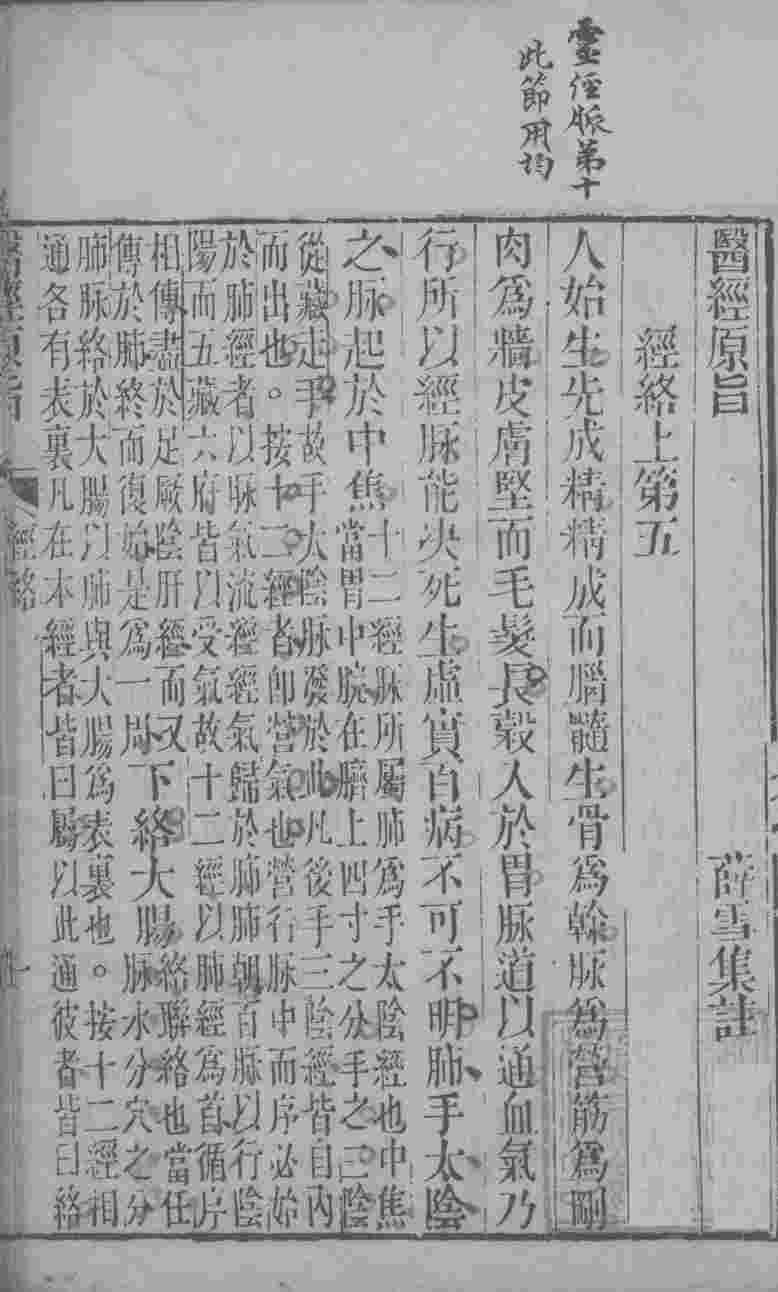 靈經脈第十
此節用均
醫經原旨　薛雪集註
經絡上第五
人始生先成精精成而腦髓生骨爲榦脉爲營筋爲剛
肉爲牆皮膚堅而毛髮長穀入於胃脉道以通血氣乃
行所以經脉能决死生處虛實百病不可不明肺手太陰
之脉起於中焦
十二經脉所屬肺爲手太陰經也中焦
當胃中脘在臍上四寸之分手之三陰
從藏走手故手太陰脉發於此凡後手三陰經皆自内
而出也。按十二經者即營氣也營行脉中而序必始
於肺經者以脉氣流經經氣歸於肺肺朝百脉以行陰
陽而五藏六府皆以受氣故十二經以肺經爲首循序
相傳盡於足厥陰肝經而又
傳於肺終而復始是爲一周
下絡大腸
絡聯絡也當任
脉水分穴之分
肺脉絡於大腸以肺與大腸爲表裏也。按十二經相
通各有表裏凡在本經者皆曰屬以此通彼者皆曰絡
醫經原旨　經絡